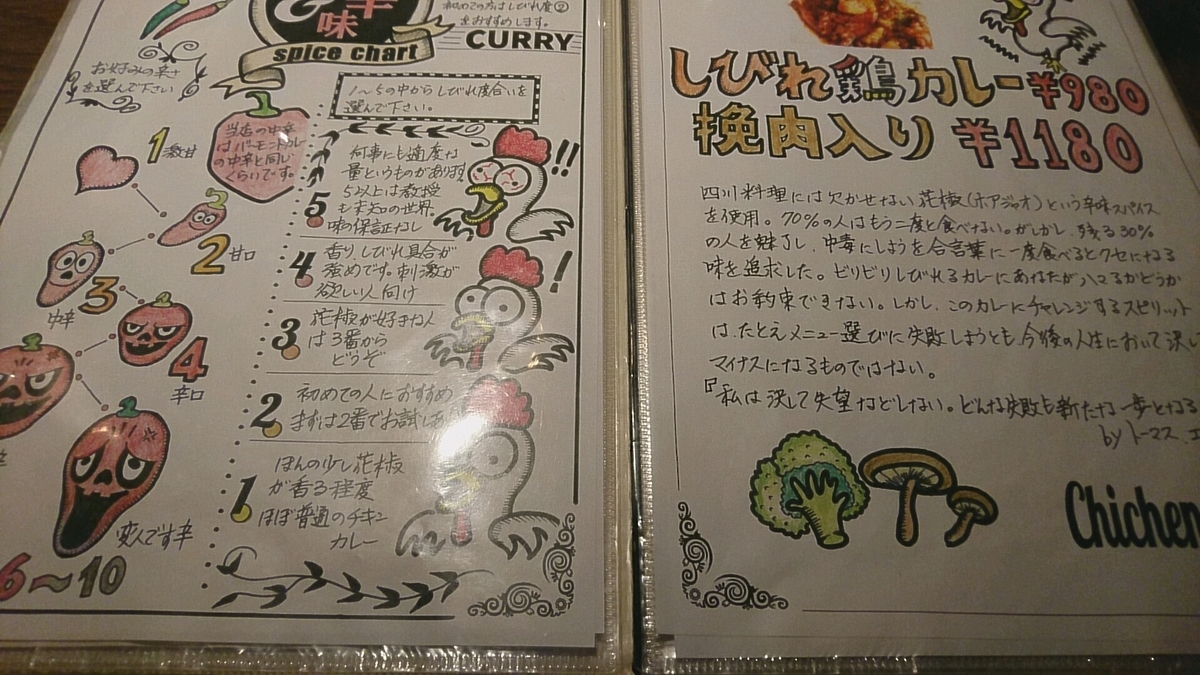 辛
味
spice chart
初めての方はしびれ度②
をおすすめします。
CURRY
お好みの辛さ
を選んで下さい
1〜5の中からしびれ度合いを
選んで下さい。
当店の中辛
はバーモントカレー
の中辛と同じ
くらいです。
1 激甘
2 甘口
3
中辛
4
辛口
辛
変人です辛
6〜10
何事にも適度な
量というものがあります
5以上は教授
も未知の世界。
味の保証なし
5
!!
4
香り、しびれ具合が
強めです。刺激が
欲しい人向け
!
3
花椒が好きな人
は3番から
どうぞ
2
初めての人におすすめ
まずは2番でお試しあ
1
ほんの少し花椒
が香る程度
ほぼ普通のチキン
カレー
しびれ鶏カレー¥980
挽肉入り ¥1180
四川料理には欠かせない花椒(ホアジャオ)という辛味スパイス
を使用。70%の人はもう二度と食べない。がしかし、残る30%
の人を魅了し、中毒にしようを合言葉に一度食べるとクセになる
味を追求した。ビリビリしびれるカレーにあなたがハマるかどうか
はお約束できない。しかし、このカレーにチャレンジするスピリット
は、たとえメニュー選びに失敗しようとも、今後の人生において決し
マイナスになるものではない。
『私は決して失望などしない。どんな失敗も新たな一歩となる
by トーマス.エ
Chicken